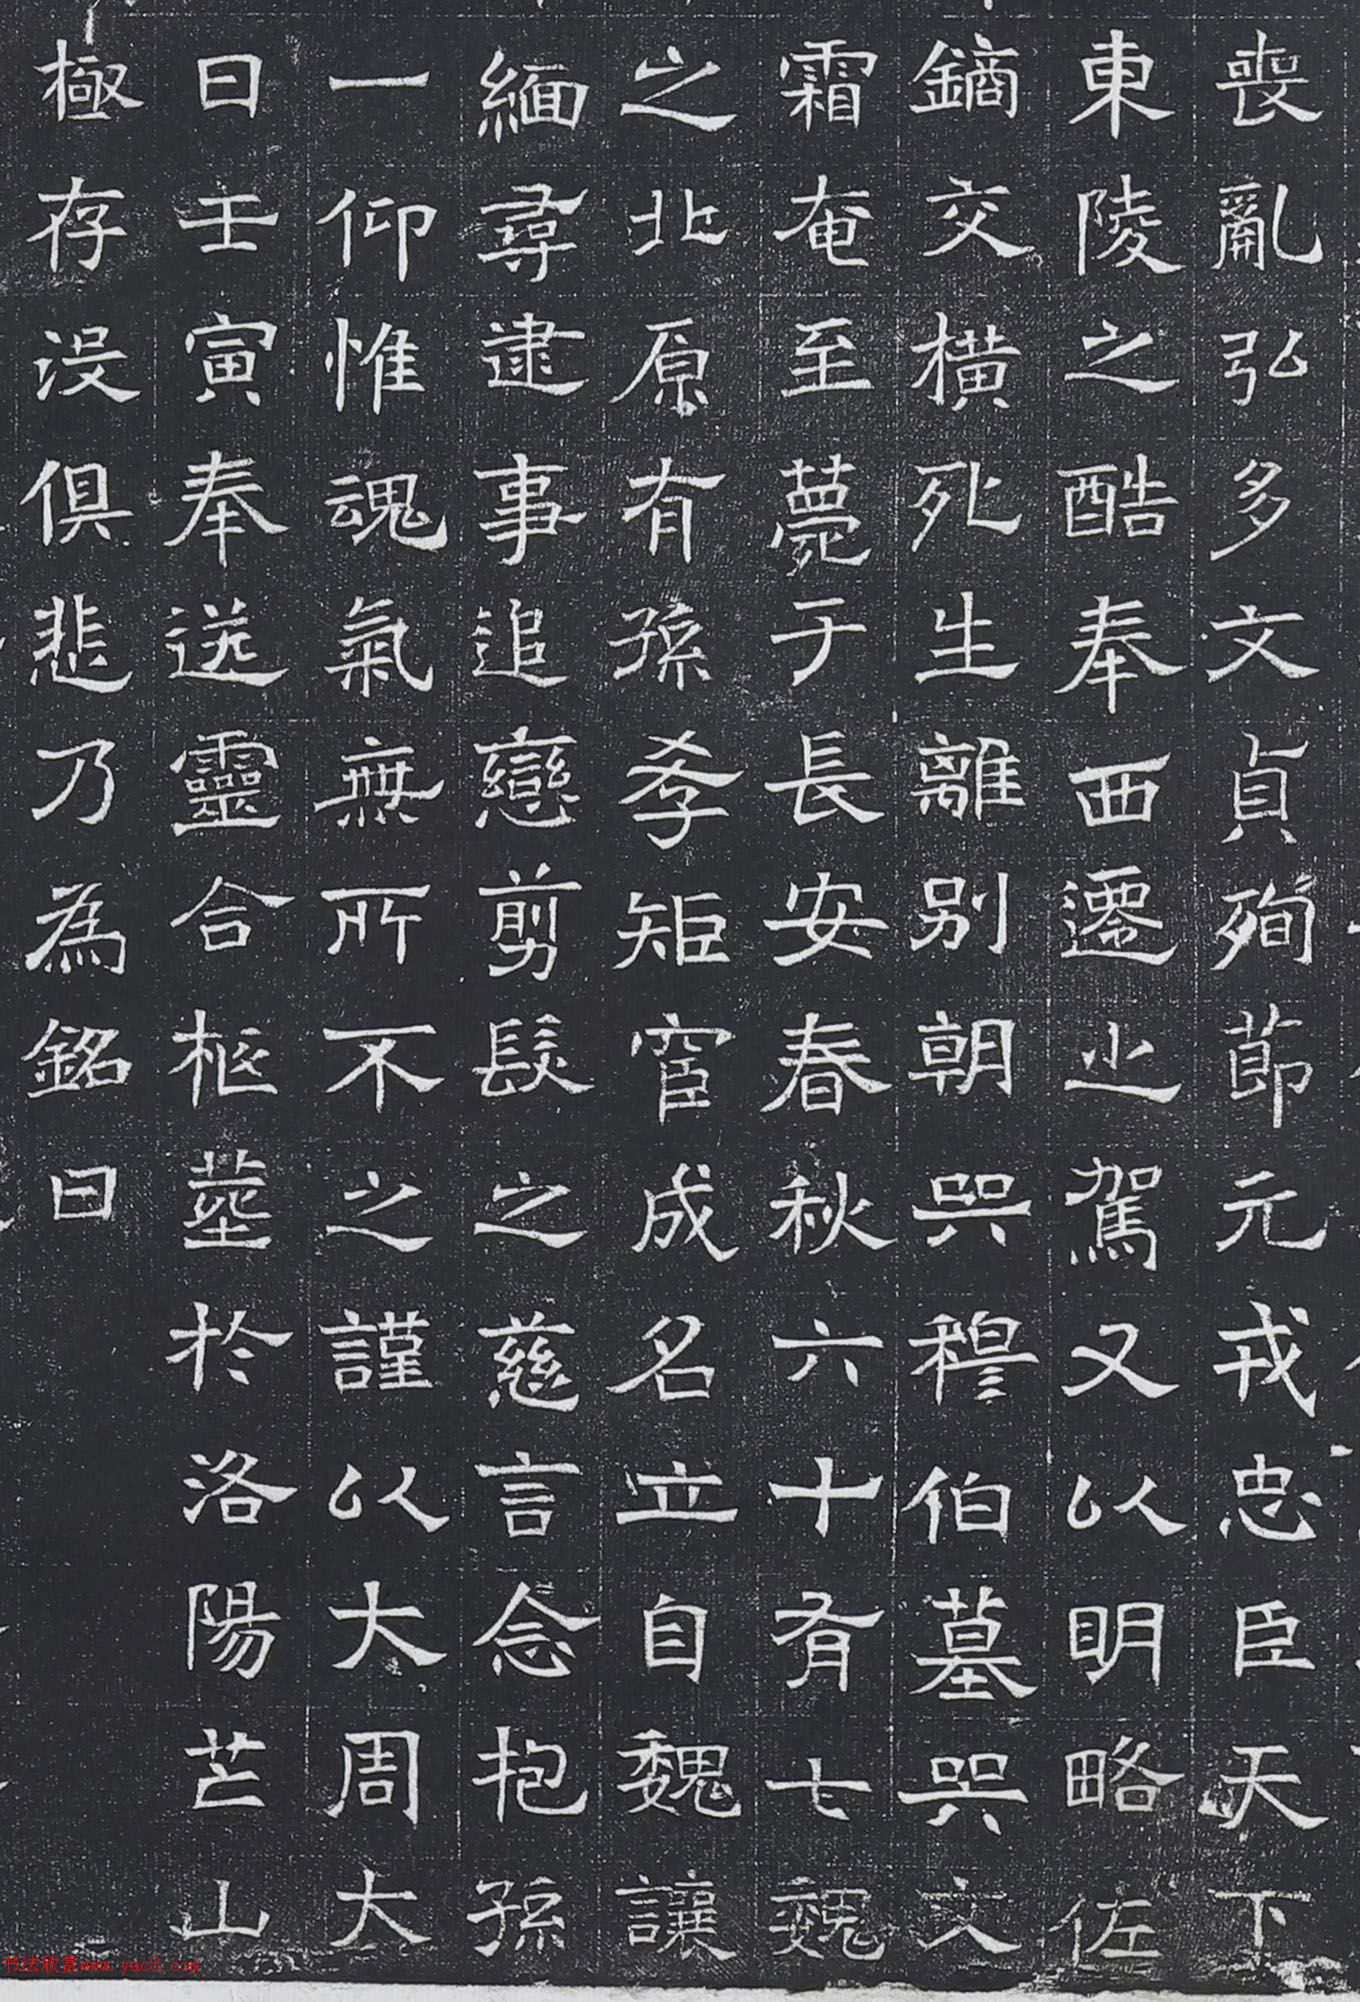 喪亂弘多文貞殉節元戎忠臣天下
東陵之酷奉西遷之駕又以明略佐
鏑交橫死生離別朝哭穆伯墓哭文
霜奄至薨于長安春秋六十有七魏
之北原有孫季矩宦成名立自魏讓
緬尋逮事追戀剪髮之慈言念抱孫
一仰惟魂氣無所不之謹以大周大
日壬寅奉送靈合柩塟於洛陽芒山
極存沒俱悲乃為銘曰
书法欣赏www.yac8.com